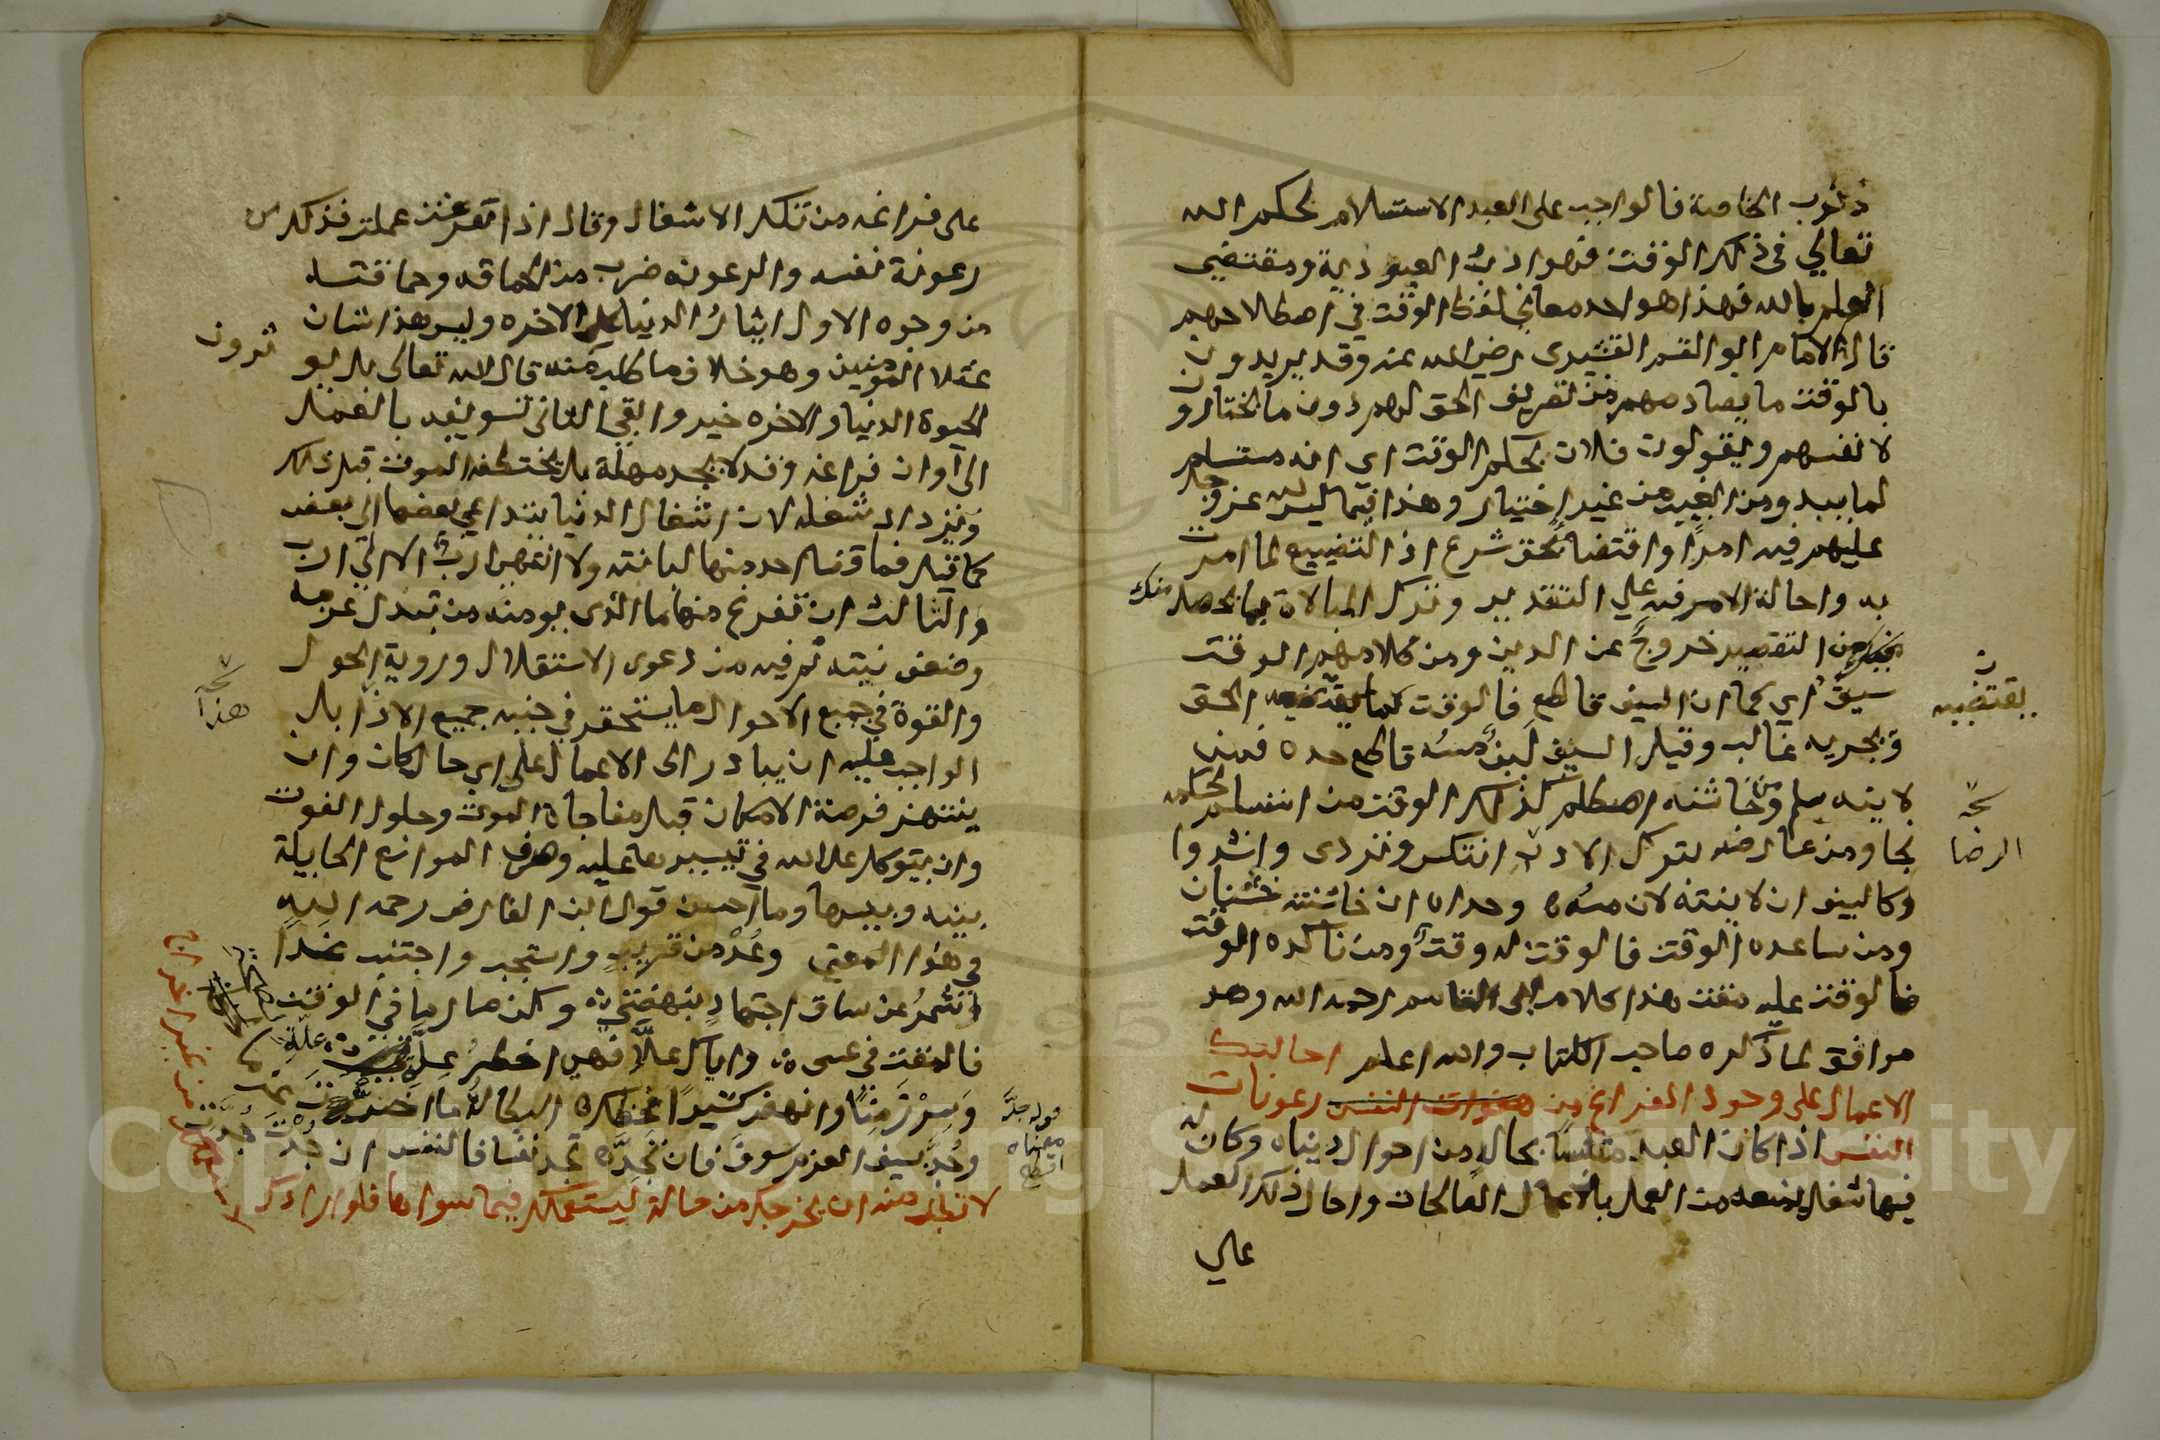 ذنوب الخاصة فالواجب على العبد الاستسلام لحكم الله
تعالي في ذلك الوقت فهو ادب العبودية ومقتضي
العلم بالله فهذا هو احد معاني لفظ الوقت في اصطلاحهم
قال الامام ابو القسم القشيرى رضي الله عنه وقد يريدون
بالوقت ما يصادمهم من تصريف الحق لهم دون ما يختارون
لانفسهم ويقولون فلان بحكم الوقت اي انه مستسلم
لما يبدو من الغيب من غير اختيار وهذا فيما ليس لله عز وجل
عليهم فيه امرًا واقتضا بحق شرع اذ التضييع لما امرت
به واحالة الامر فيه علي التقدير وترك المبالاة بما يحصل منك
من التقصير خروج عن الدين ومن كلامهم الوقت
سيف اي كما ان السيف قاطع فالوقت لما الحق
يقتضيه
ويجريه غالب وقيل السيف لين مسه قاطع حده فمن
لاينه سلم ومن خاشنه اصطلم كذلك الوقت من استسلم لحكمه
نجا ومن عارضه بترك الادب انتكس وتردى وانشدوا
نخه
الرضا
وكالسيف ان لاينته لان مسه وحداه ان خاشنته خشنان
ومن ساعده الوقت فالوقت له وقت ومن ناكده الوقت
فالوقت عليه مقت هذا كلام ابى القاسم رحمه الله وهو
موافق لما ذكره صاحب الكتاب والله اعلم احالتك
الاعمال على وجود الفراغ من رعونات
النفس اذا كان العبد متلبسًا بحال من احوال دنياه وكان له
فيها شغل يمنعه من العمل بالاعمال الصالحات واحال ذلك العمل
علي
على فراغه من تلك الاشغال وقال اذا تفرغت عملت فذلك من
رعونة نفسه والرعونه ضرب من الحماقه وحماقته
من وجوه الاول ايثار الدنيا علي الاخره وليس هذا شان
عقلا المومنين وهو خلاف ما طلب منه قال الله تعالى بل يو
ثرون
الحيوة الدنيا والاخره خير وابقى الثاني تسويفه بالعمل
الى آوان فراغه وقد لا يجد مهلة بل يختطفه الموت قبل ذلك
ويزداد شغله لان اشغال الدنيا يتداعي بعضها الى بعض
كما قيل فما قضا احد منها لبانته ولا انتهي ارب الا الي ارب
والثالث ان تفرغ منها ما الذى يومنه من تبدل عزمه
وضعف نيته ثم فيه من دعوى الاستقلال وروية الحول
والقوة في جميع الاحوال ما يستحقر في جنبه جميع الاذا بل
نخه
هذا
الواجب عليه ان يبادر الى الاعمال على اي حال كان وان
ينتهز فرصة الامكان قبل مفاجاة الموت وحلول الفوت
وان يتوكل على الله في تيسيرها عليه وصرف الموانع الحايلة
بينه وبينها وما احسن قول ابن الفارض رحمه الله
في هذا المعني وعد من قريب واستجب واجتنب غدا
وشمر عن ساق اجتهاد بنهضة وكن صارما في الوقت
فالمقت في عسى واياك علا فهي اخطر علة
وسر زمنًا وانهض كسيرًا فحظك البطالة ما اخرت
وجد بسيف العزم سوف فان تجد تجد نفسا فالنفس ان جدت جدت
قوله جد
معناه
اقطع
لا تطلب منه ان يخرجك من حالة ليستعملك فيما سواها فلو ارادك
لاستعملك من غير اخراج